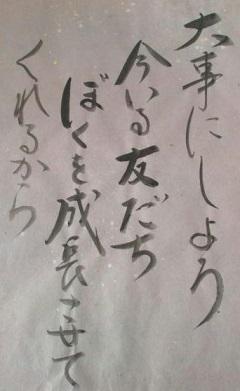 大事にしよう
今いる友だち
ぼくを成長させて
くれるから